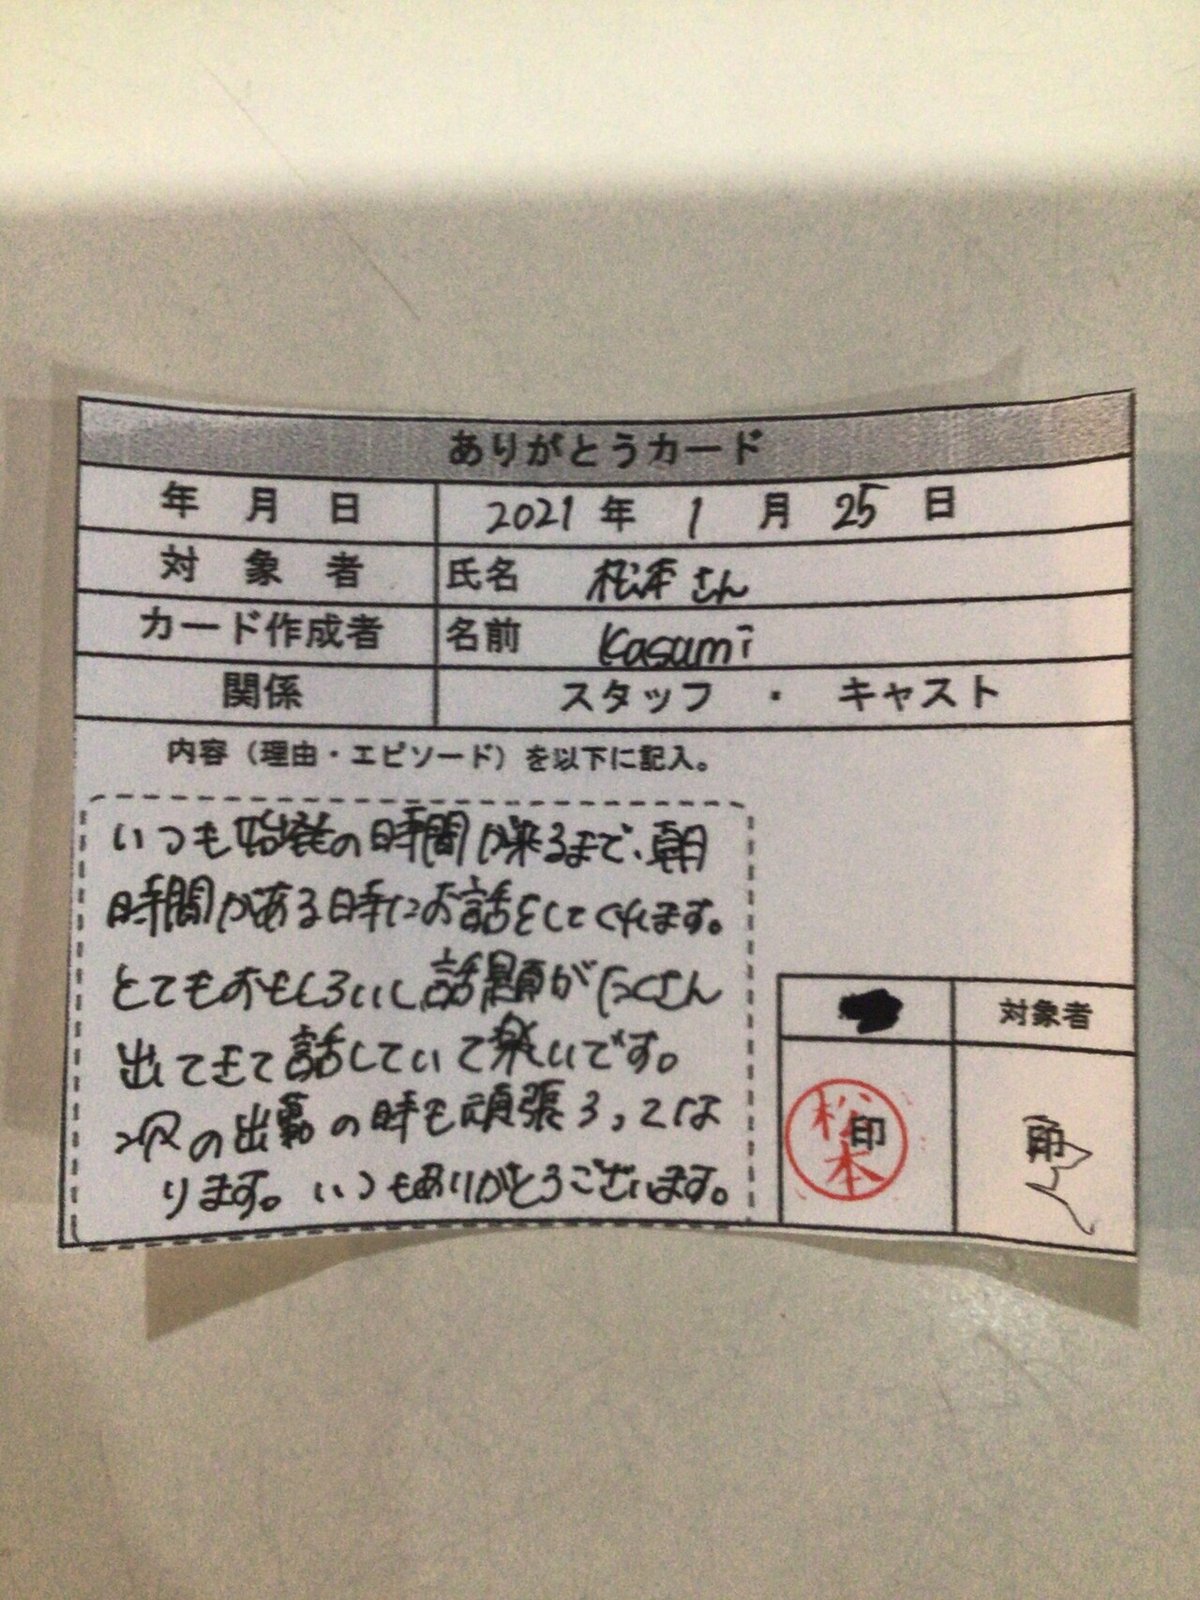 ありがとうカード
年 月 日 2021 年 1 月 25 日
対 象 者 氏名 松本さん
カード作成者 名前 Kasumi
関係 スタッフ ・ キャスト
内容（理由・エピソード）を以下に記入。
いつも始発の時間が来るまで、朝
時間がある時にお話をしてくれます。
とてもおもしろいし話題がたくさん
出てきて話していて楽しいです。
次の出勤の時も頑張ろってな
ります。いつもありがとうございます。
対象者
松本 印
印